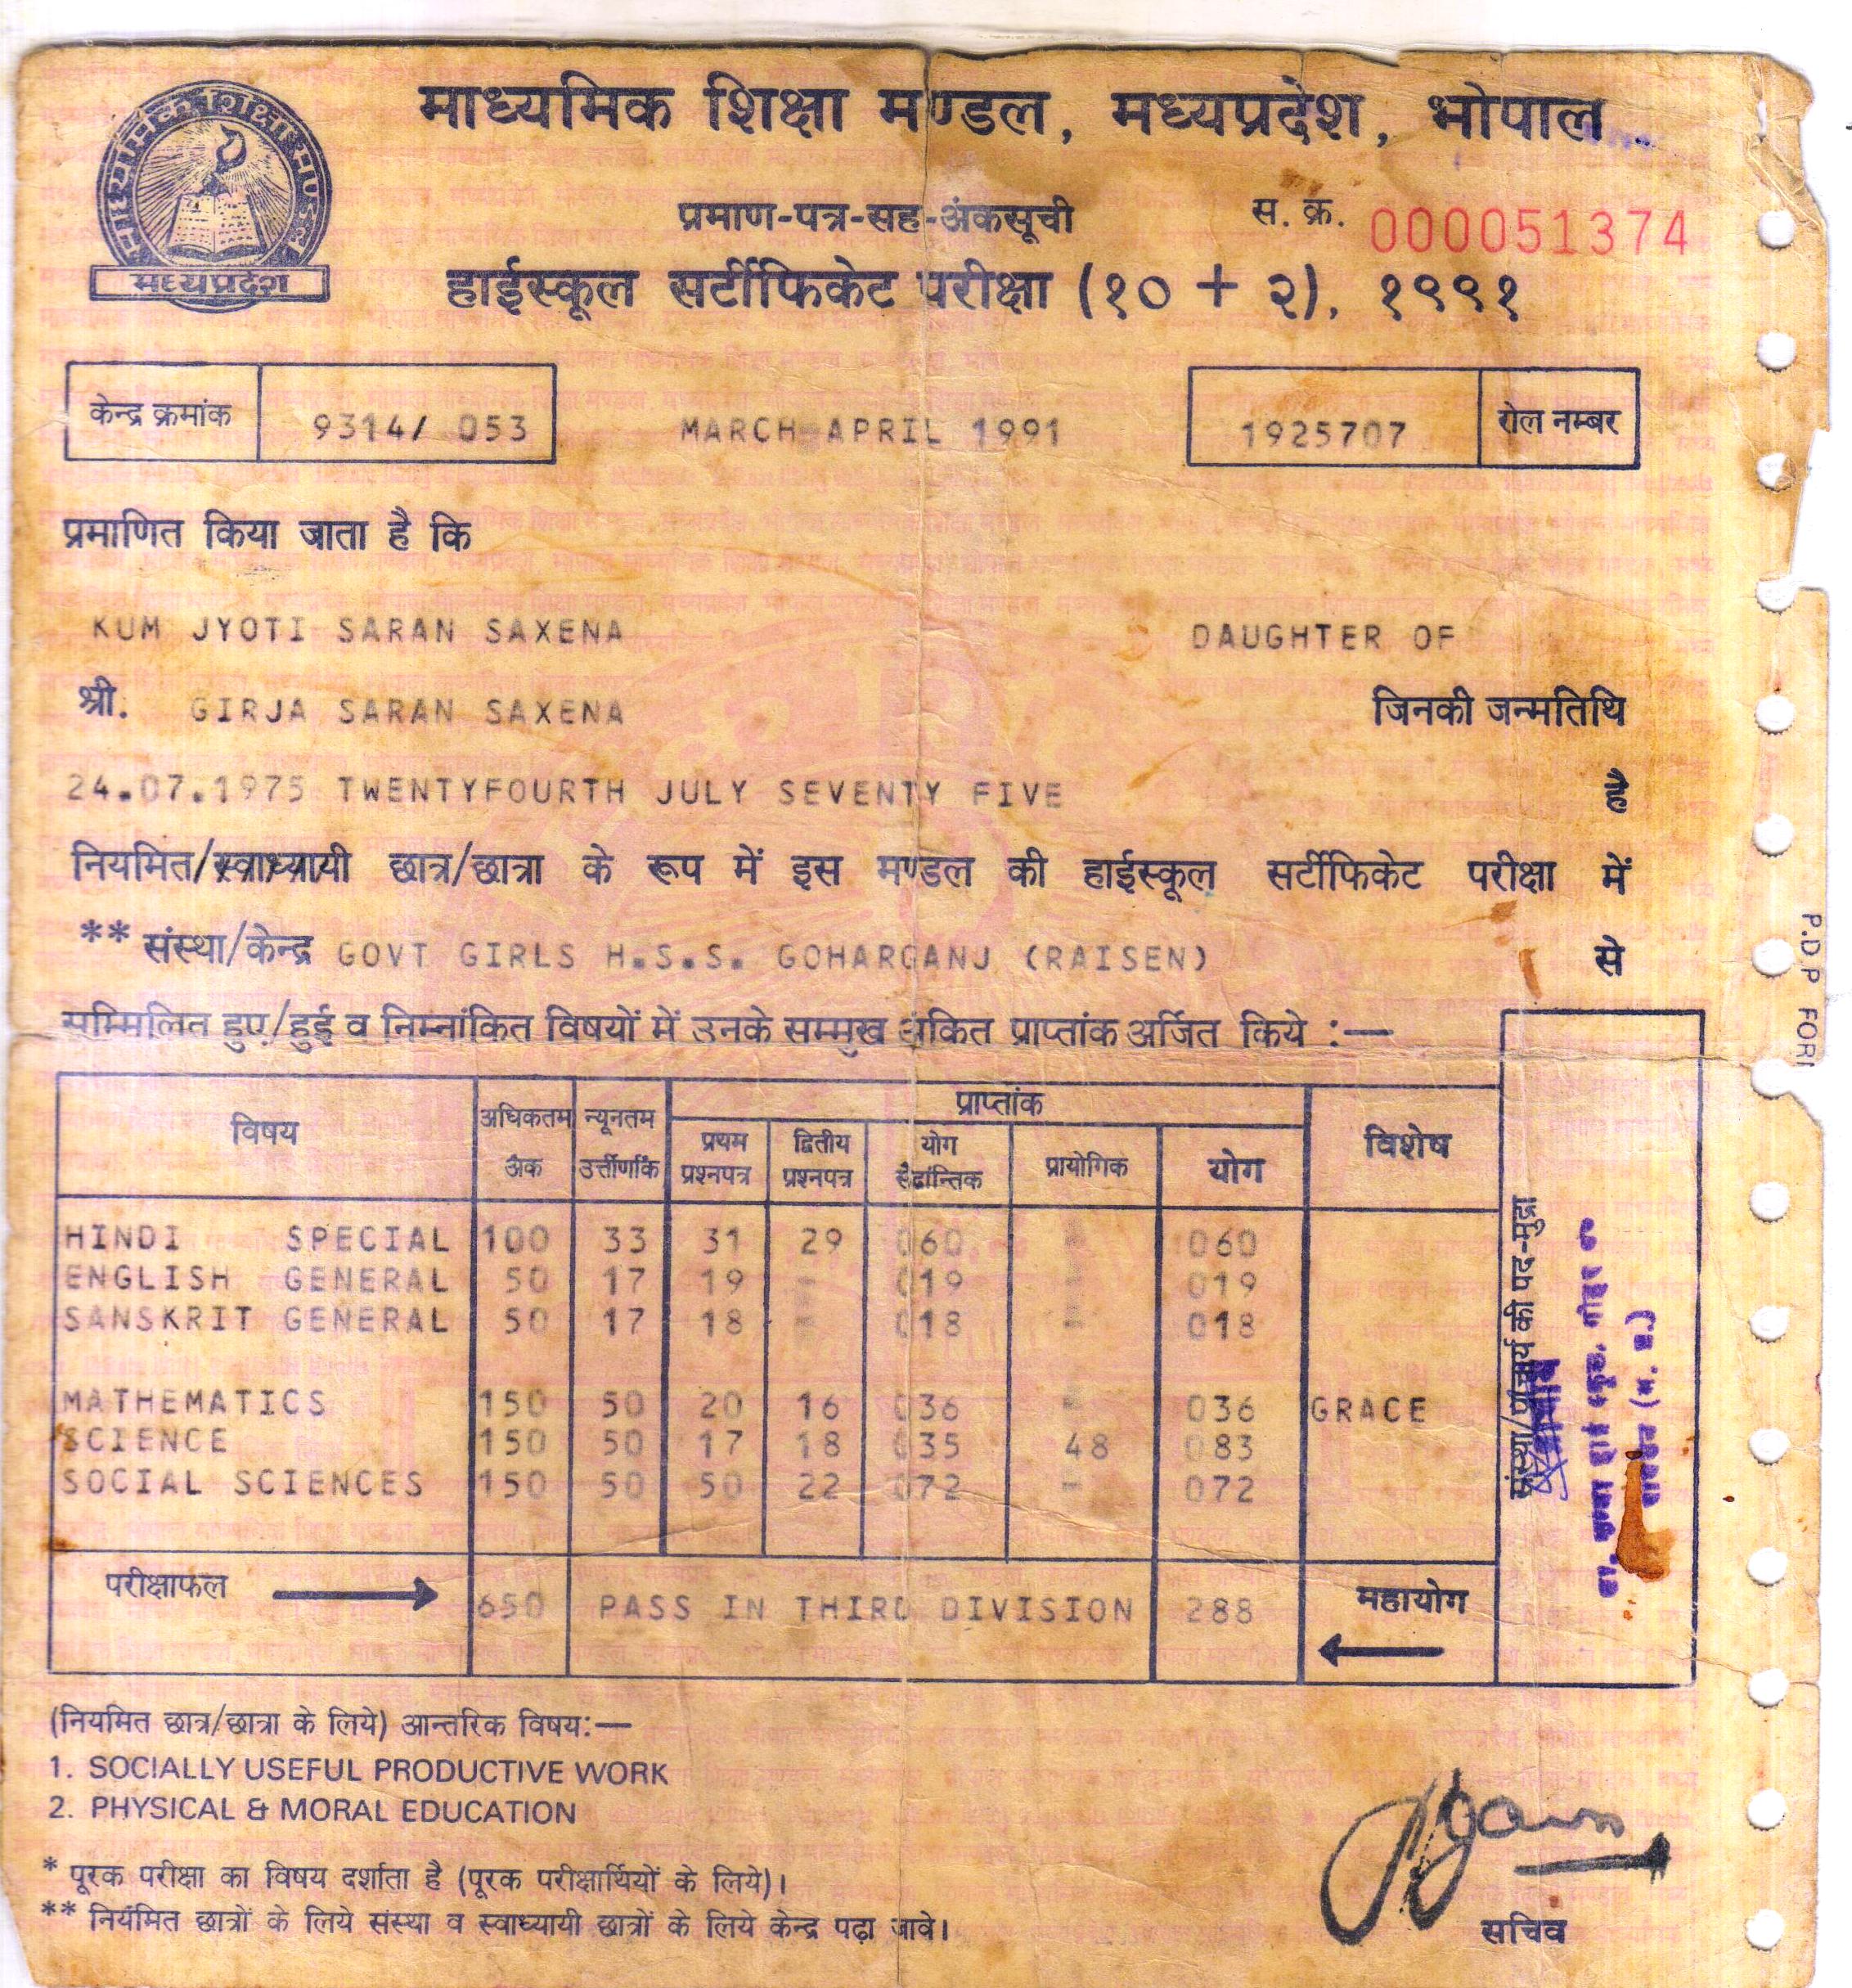 माध्यमिक शिक्षा मण्डल, मध्यप्रदेश, भोपाल
माध्यमिक शिक्षा मण्डल
मध्यप्रदेश
प्रमाण-पत्र-सह-अंकसूची स. क्र. 000051374
हाईस्कूल सर्टीफिकेट परीक्षा (१० + २), १९९१
केन्द्र क्रमांक 9314/ 053 MARCH-APRIL 1991 1925707 रोल नम्बर
प्रमाणित किया जाता है कि
KUM JYOTI SARAN SAXENA DAUGHTER OF
श्री. GIRJA SARAN SAXENA जिनकी जन्मतिथि
24.07.1975 TWENTYFOURTH JULY SEVENTY FIVE है
नियमित/स्वाध्यायी छात्र/छात्रा के रूप में इस मण्डल की हाईस्कूल सर्टीफिकेट परीक्षा में
** संस्था/केन्द्र GOVT GIRLS H.S.S. GOHARGANJ (RAISEN) से
सम्मिलित हुए/हुई व निम्नांकित विषयों में उनके सम्मुख अंकित प्राप्तांक अर्जित किये :—
विषय अधिकतम अंक न्यूनतम उत्तीर्णांक प्राप्तांक विशेष
प्रथम प्रश्नपत्र द्वितीय प्रश्नपत्र योग सैद्धान्तिक प्रायोगिक योग
HINDI SPECIAL 100 33 31 29 060 - 060
ENGLISH GENERAL 50 17 19 - 019 - 019
SANSKRIT GENERAL 50 17 18 - 018 - 018
MATHEMATICS 150 50 20 16 036 - 036 GRACE
SCIENCE 150 50 17 18 035 48 083
SOCIAL SCIENCES 150 50 50 22 072 - 072
परीक्षाफल 650 PASS IN THIRD DIVISION 288 महायोग
संस्था/प्राचार्य की पद-मुद्रा
(नियमित छात्र/छात्रा के लिये) आन्तरिक विषय:—
1. SOCIALLY USEFUL PRODUCTIVE WORK
2. PHYSICAL & MORAL EDUCATION
* पूरक परीक्षा का विषय दर्शाता है (पूरक परीक्षार्थियों के लिये)।
** नियमित छात्रों के लिये संस्था व स्वाध्यायी छात्रों के लिये केन्द्र पढ़ा जावे।
सचिव
P.D.P FOR